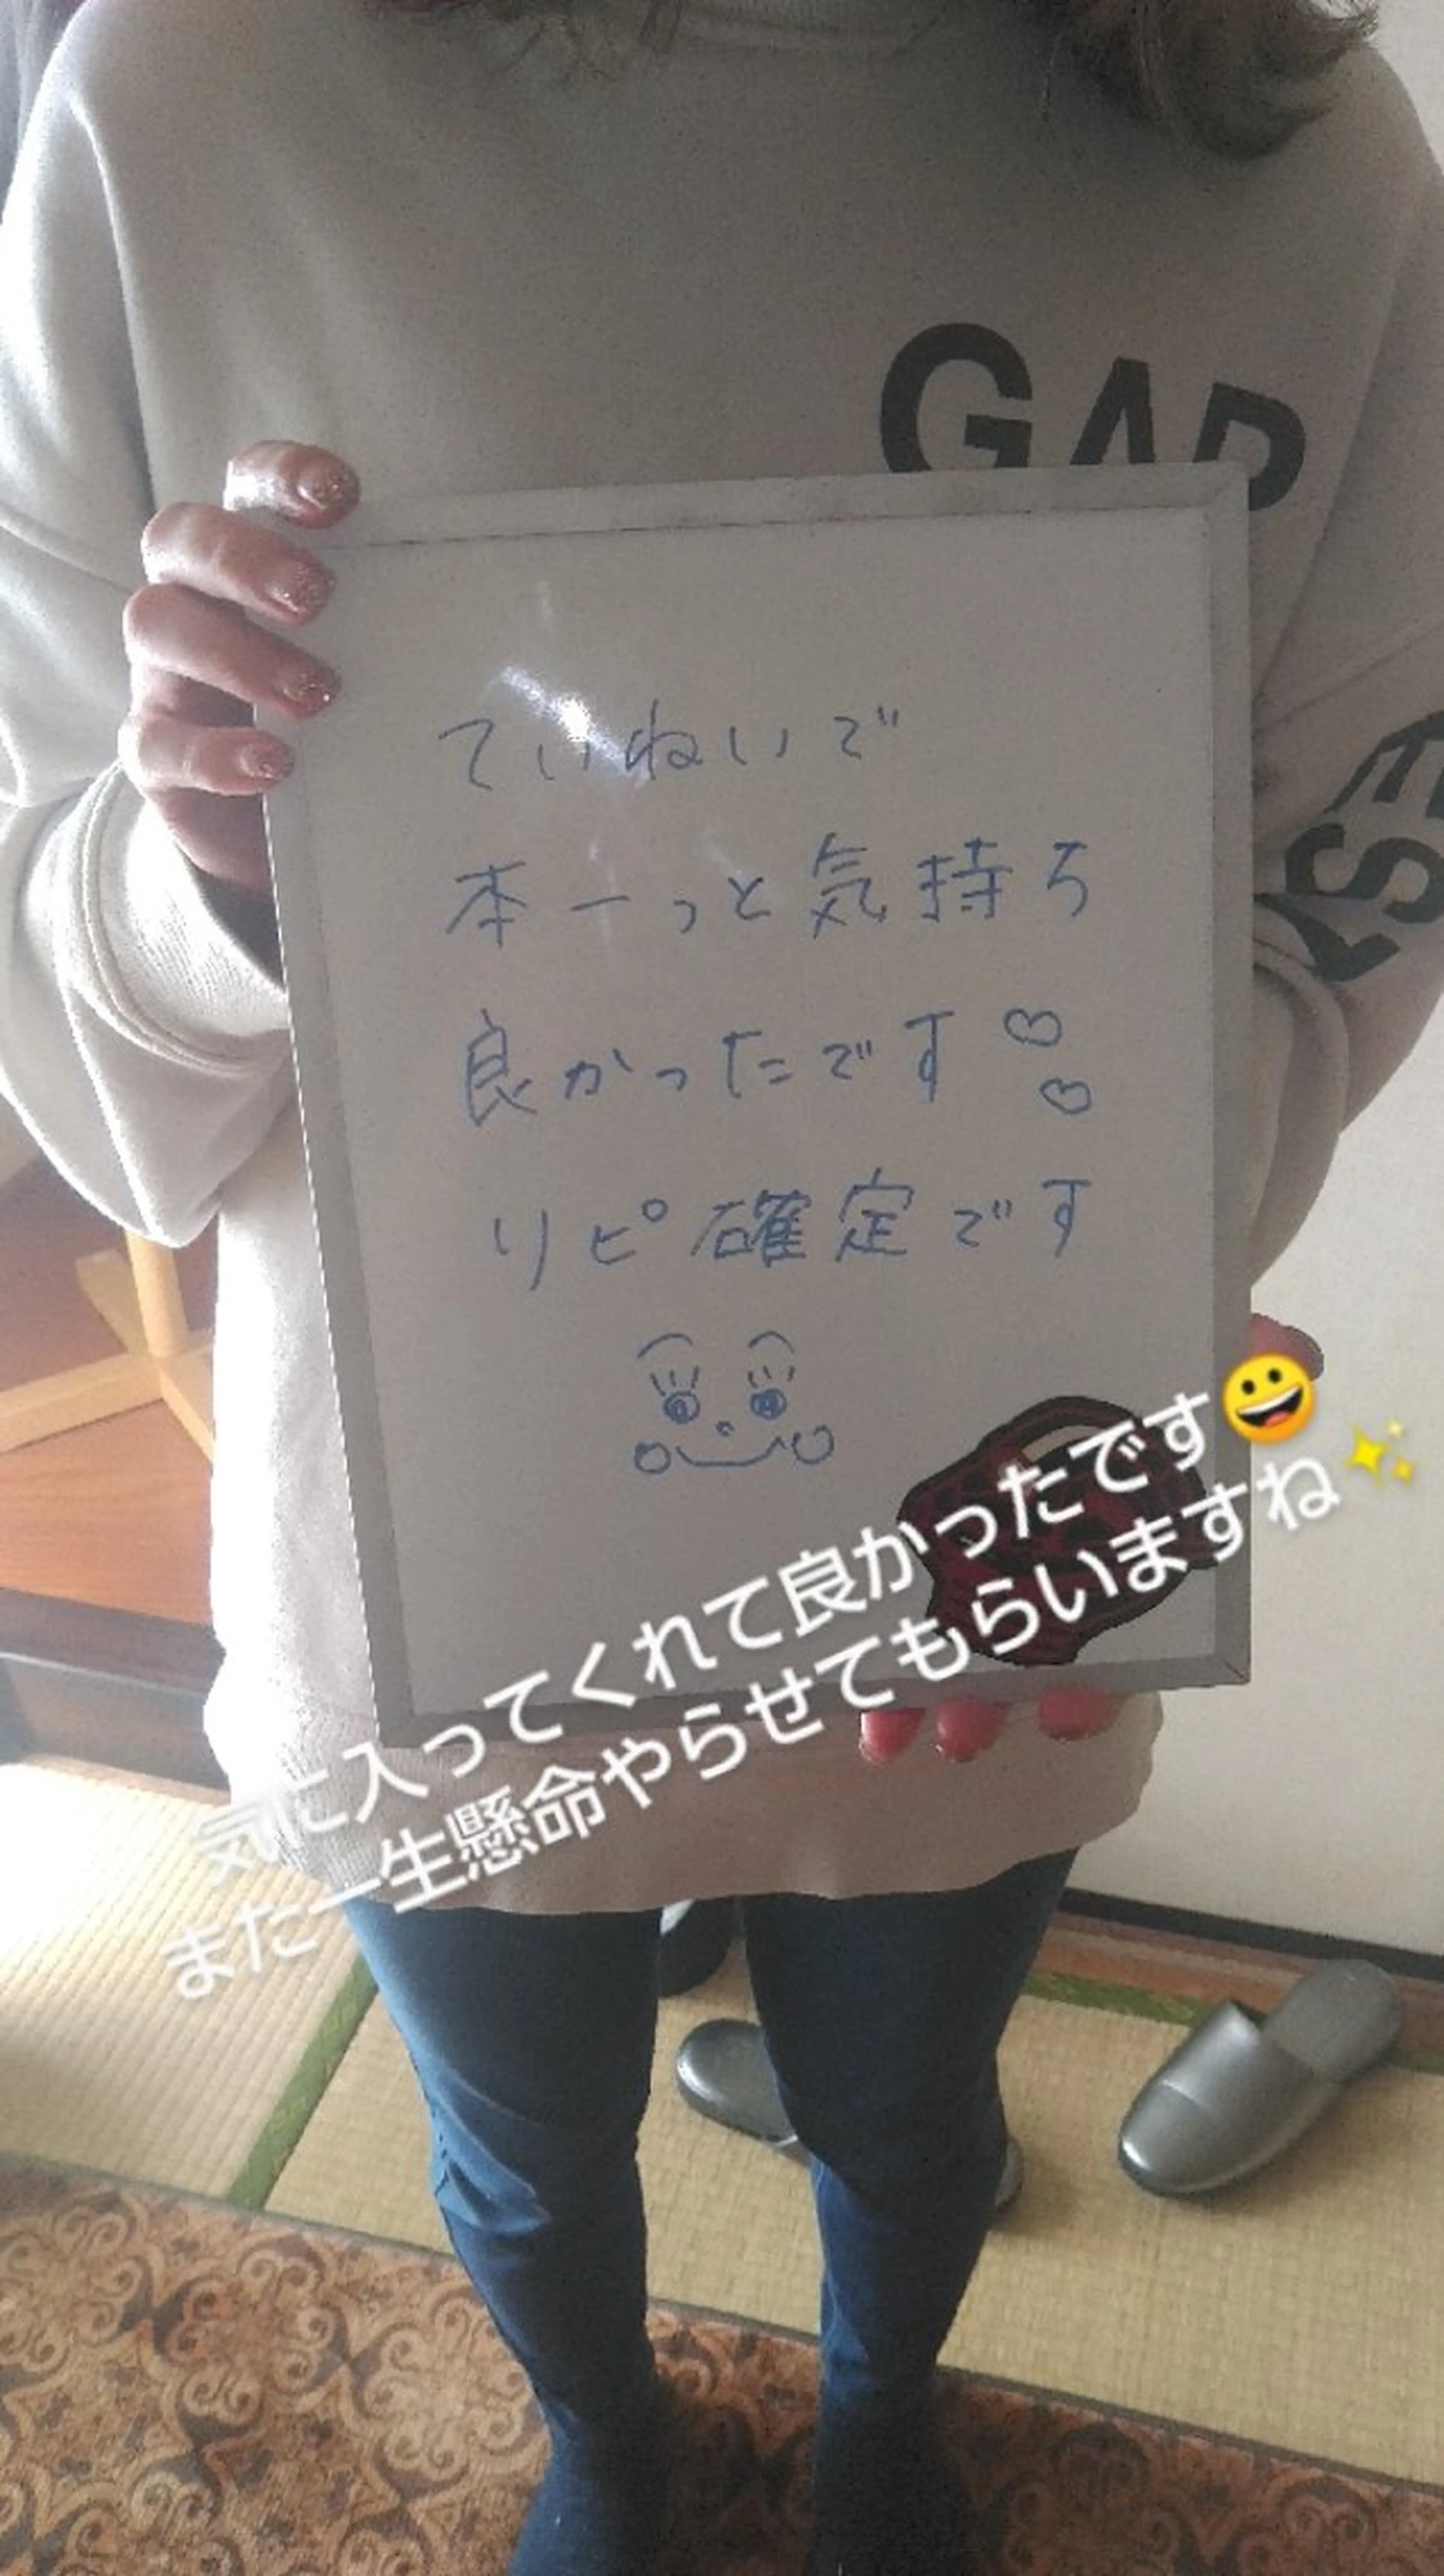 GAP
EST
ていねいで
本ーっと気持ち
良かったです♡♡
リピ確定です
気に入ってくれて良かったです😀
また一生懸命やらせてもらいますね✨